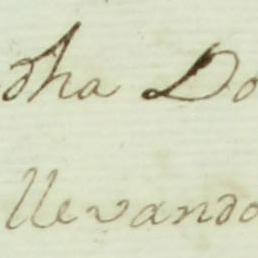 dha Do
llevando